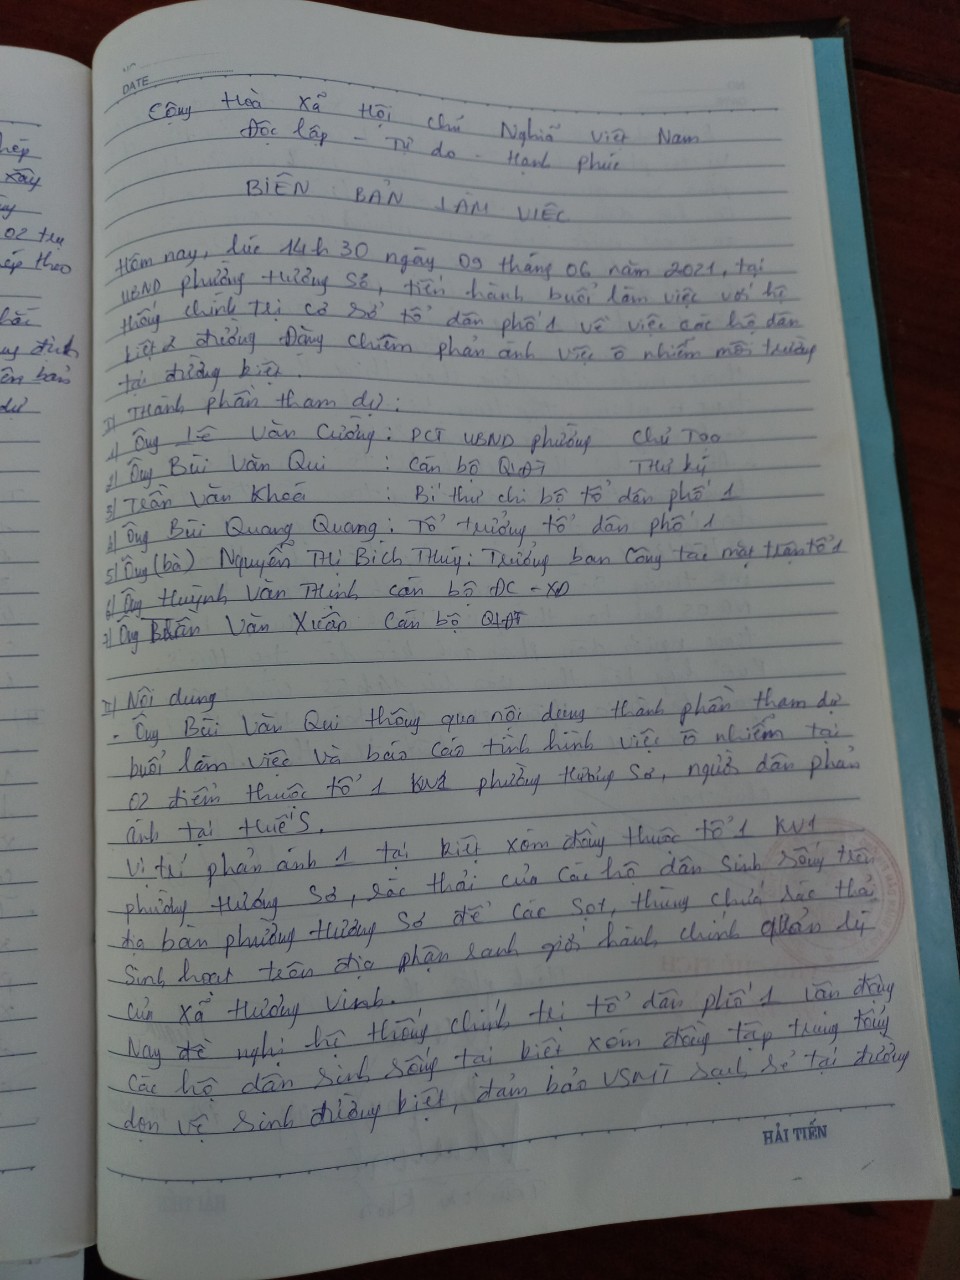 hép
xây
02 trụ
ép theo
bắc
ng đình
ên bản
dự
DATE
Cộng Hoà Xã Hội Chủ Nghĩa Việt Nam
Độc lấp - Tự do - Hạnh phúc
BIÊN BẢN LÀM VIỆC
Hôm nay, lúc 14h30 ngày 09 tháng 06 năm 2021, tại
UBND phường Hương Sơ, tiến hành buổi làm việc với hệ
thống chính trị cơ sở tổ dân phố 1 về việc các hộ dân
kiệt 2 đường Đặng Chiêm phản ánh việc ô nhiễm môi trường
tại đường kiệt.
I/ Thành phần tham dự:
1/ Ông Lê Văn Cường: PCT UBND phường Chủ Toạ
2/ Ông Bùi Văn Qui : Cán bộ QLĐT Thư ký
3/ Trần Văn Khoá : Bí thư chi bộ tổ dân phố 1
4/ Ông Bùi Quang Quang: Tổ trưởng tổ dân phố 1
5/ Ông (bà) Nguyễn Thị Bích Thuỷ: Trưởng ban Công tác mặt trận tổ 1
6/ Ông Huỳnh Văn Thịnh cán bộ ĐC - XD
7/ Ông Văn Xuân Cán bộ QLĐT
II/ Nội dung
- Ông Bùi Văn Qui thông qua nội dung thành phần tham dự
buổi làm việc và báo cáo tình hình việc ô nhiễm tại
02 điểm thuộc tổ 1 KV1 phường Hương Sơ, người dân phản
ánh tại Huế S.
Vị trí phản ánh 1 tại kiệt xóm đồng thuộc tổ 1 KV1
phường Hương Sơ, rác thải của các hộ dân sinh sống trên
địa bàn phường Hương Sơ để các sọt, thùng chứa rác thải
sinh hoạt trên địa phận ranh giới hành chính quản lý
của xã Hương Vinh.
Nay đề nghị hệ thống chính trị tổ dân phố 1 vận động
các hộ dân sinh sống tại kiệt xóm đồng tập trung tổng
dọn vệ sinh đường kiệt, đảm bảo VSMT sạch sẽ tại đường
HẢI TIẾN